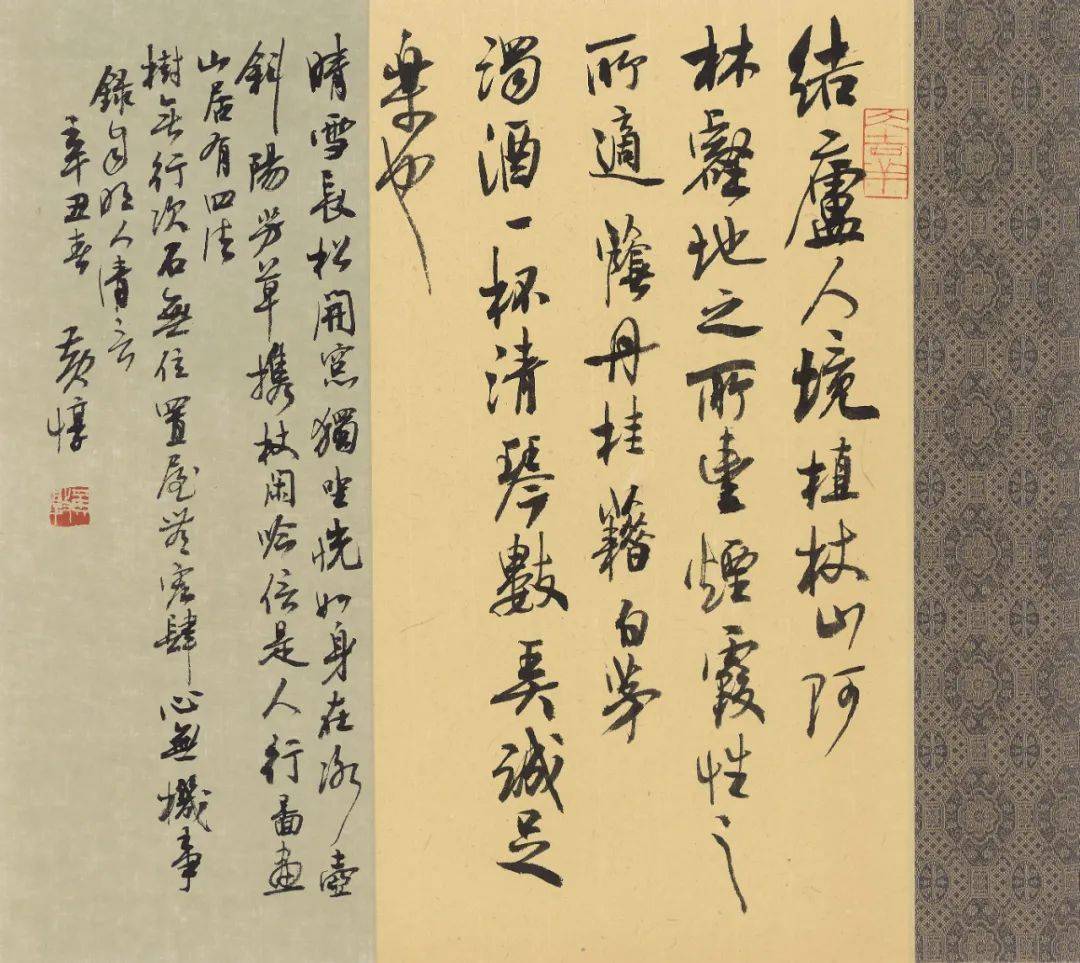 結廬人境植杖山阿
林壑地之所豊煙霞性之
所適蔭丹桂藉白茅
濁酒一杯清琴數弄誠足
樂也
晴雪長松開窓獨坐恍如身在冰壺
斜陽芳草攜杖閑吟信是人行圖畫
山居有四法
樹無行次石無位置屋無宏肆心無機事
錄自明人清言
辛丑春 黃惇